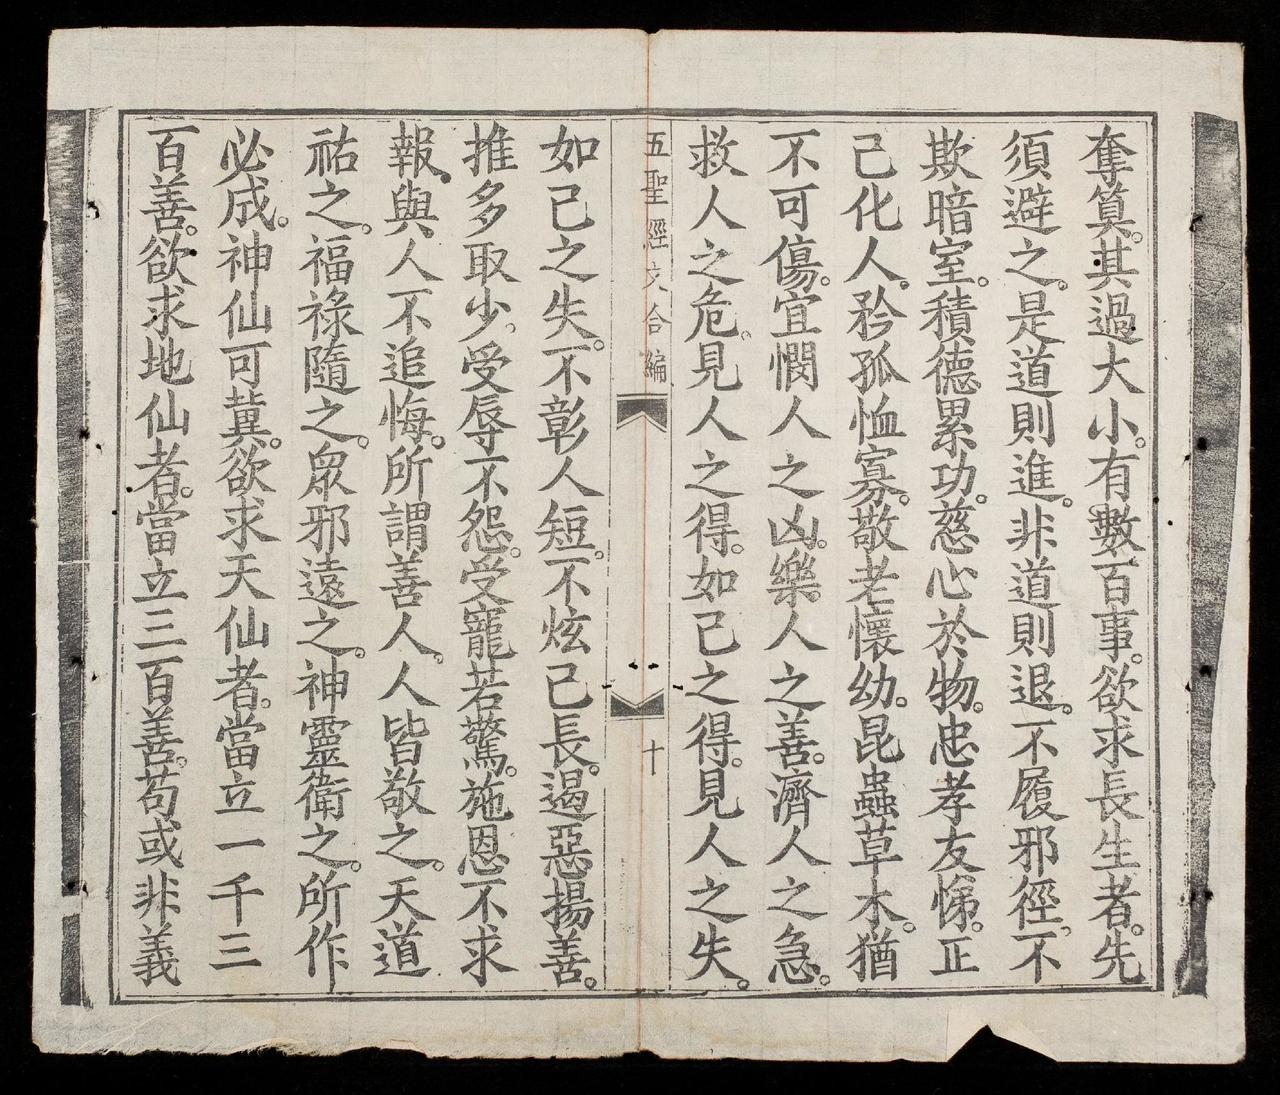 奪算。其過大小。有數百事。欲求長生者。先
須避之。是道則進。非道則退。不履邪徑。不
欺暗室。積德累功。慈心於物。忠孝友悌。正
己化人。矜孤恤寡。敬老懷幼。昆蟲草木。猶
不可傷。宜憫人之凶。樂人之善。濟人之急。
救人之危。見人之得。如己之得。見人之失。
五聖經文合編
十
如己之失。不彰人短。不炫己長。遏惡揚善。
推多取少。受辱不怨。受寵若驚。施恩不求
報。與人不追悔。所謂善人。人皆敬之。天道
祐之。福祿隨之。眾邪遠之。神靈衛之。所作
必成。神仙可冀。欲求天仙者。當立一千三
百善。欲求地仙者。當立三百善。苟或非義